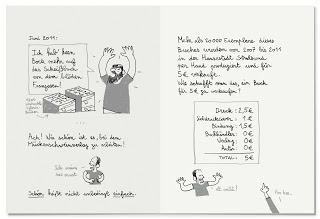 Juni 2011:
Ich hab' kein
Bock mehr auf
das Scheißbuch
von dem blöden
Franzosen!
Ach! Wie schön ist es, bei dem
Mückenschweinverlag zu arbeiten!
Schön heißt nicht unbedingt einfach.
Mehr als 20000 Exemplare dieses
Buches wurden von 2007 bis 2011
in der Hansestadt Stralsund
per Hand produziert und für
5€ verkauft.
Wie schafft man es, ein Buch
für 5€ zu verkaufen?
Druck: 2,5€
Siebdruckcover: 1€
Bindung: 1,5€
Buchhändler: 0€
Verlag: 0€
Autor: 0€
TOTAL: 5€